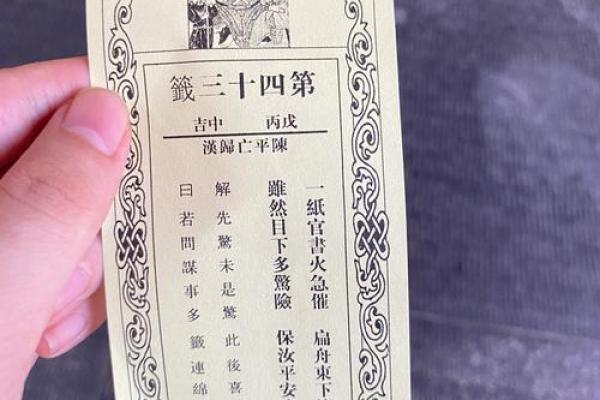 第四十三籤
戊丙 中吉
陳平亡歸漢
一紙官書火急催 扁舟東下
雖然目下多驚險 保汝平安
解先驚未是驚 此後喜
曰若問謀事多 籤連綿